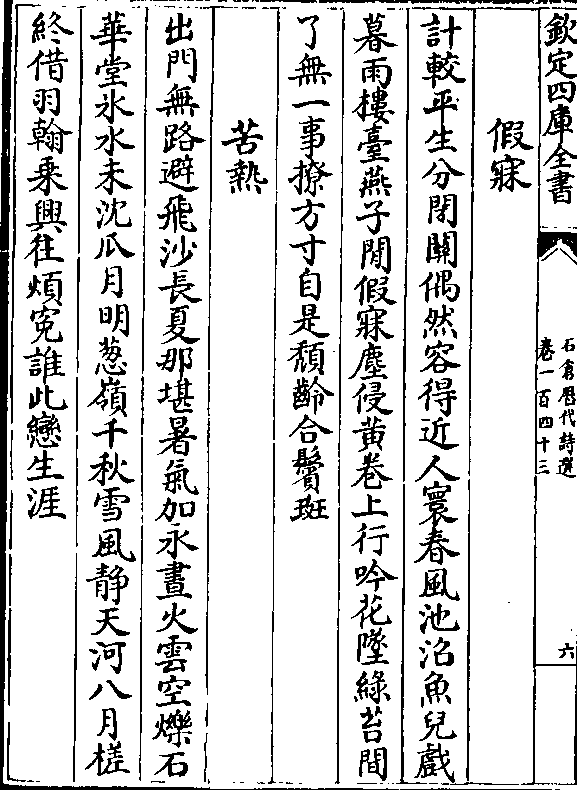 欽定四庫全書
石倉歷代詩選
卷一百四十三
六
假寐
計較平生分閉關偶然容得近人寰春風池沼魚兒戲
暮雨樓臺燕子閒假寐塵侵黄卷上行吟花墜綠苔間
了無一事撩方寸自是頹齡合鬢斑
苦熱
出門無路避飛沙長夏那堪暑氣加永晝火雲空爍石
華堂氷水未沈瓜月明葱嶺千秋雪風静天河八月槎
終借羽翰乗興往煩寃誰此戀生涯